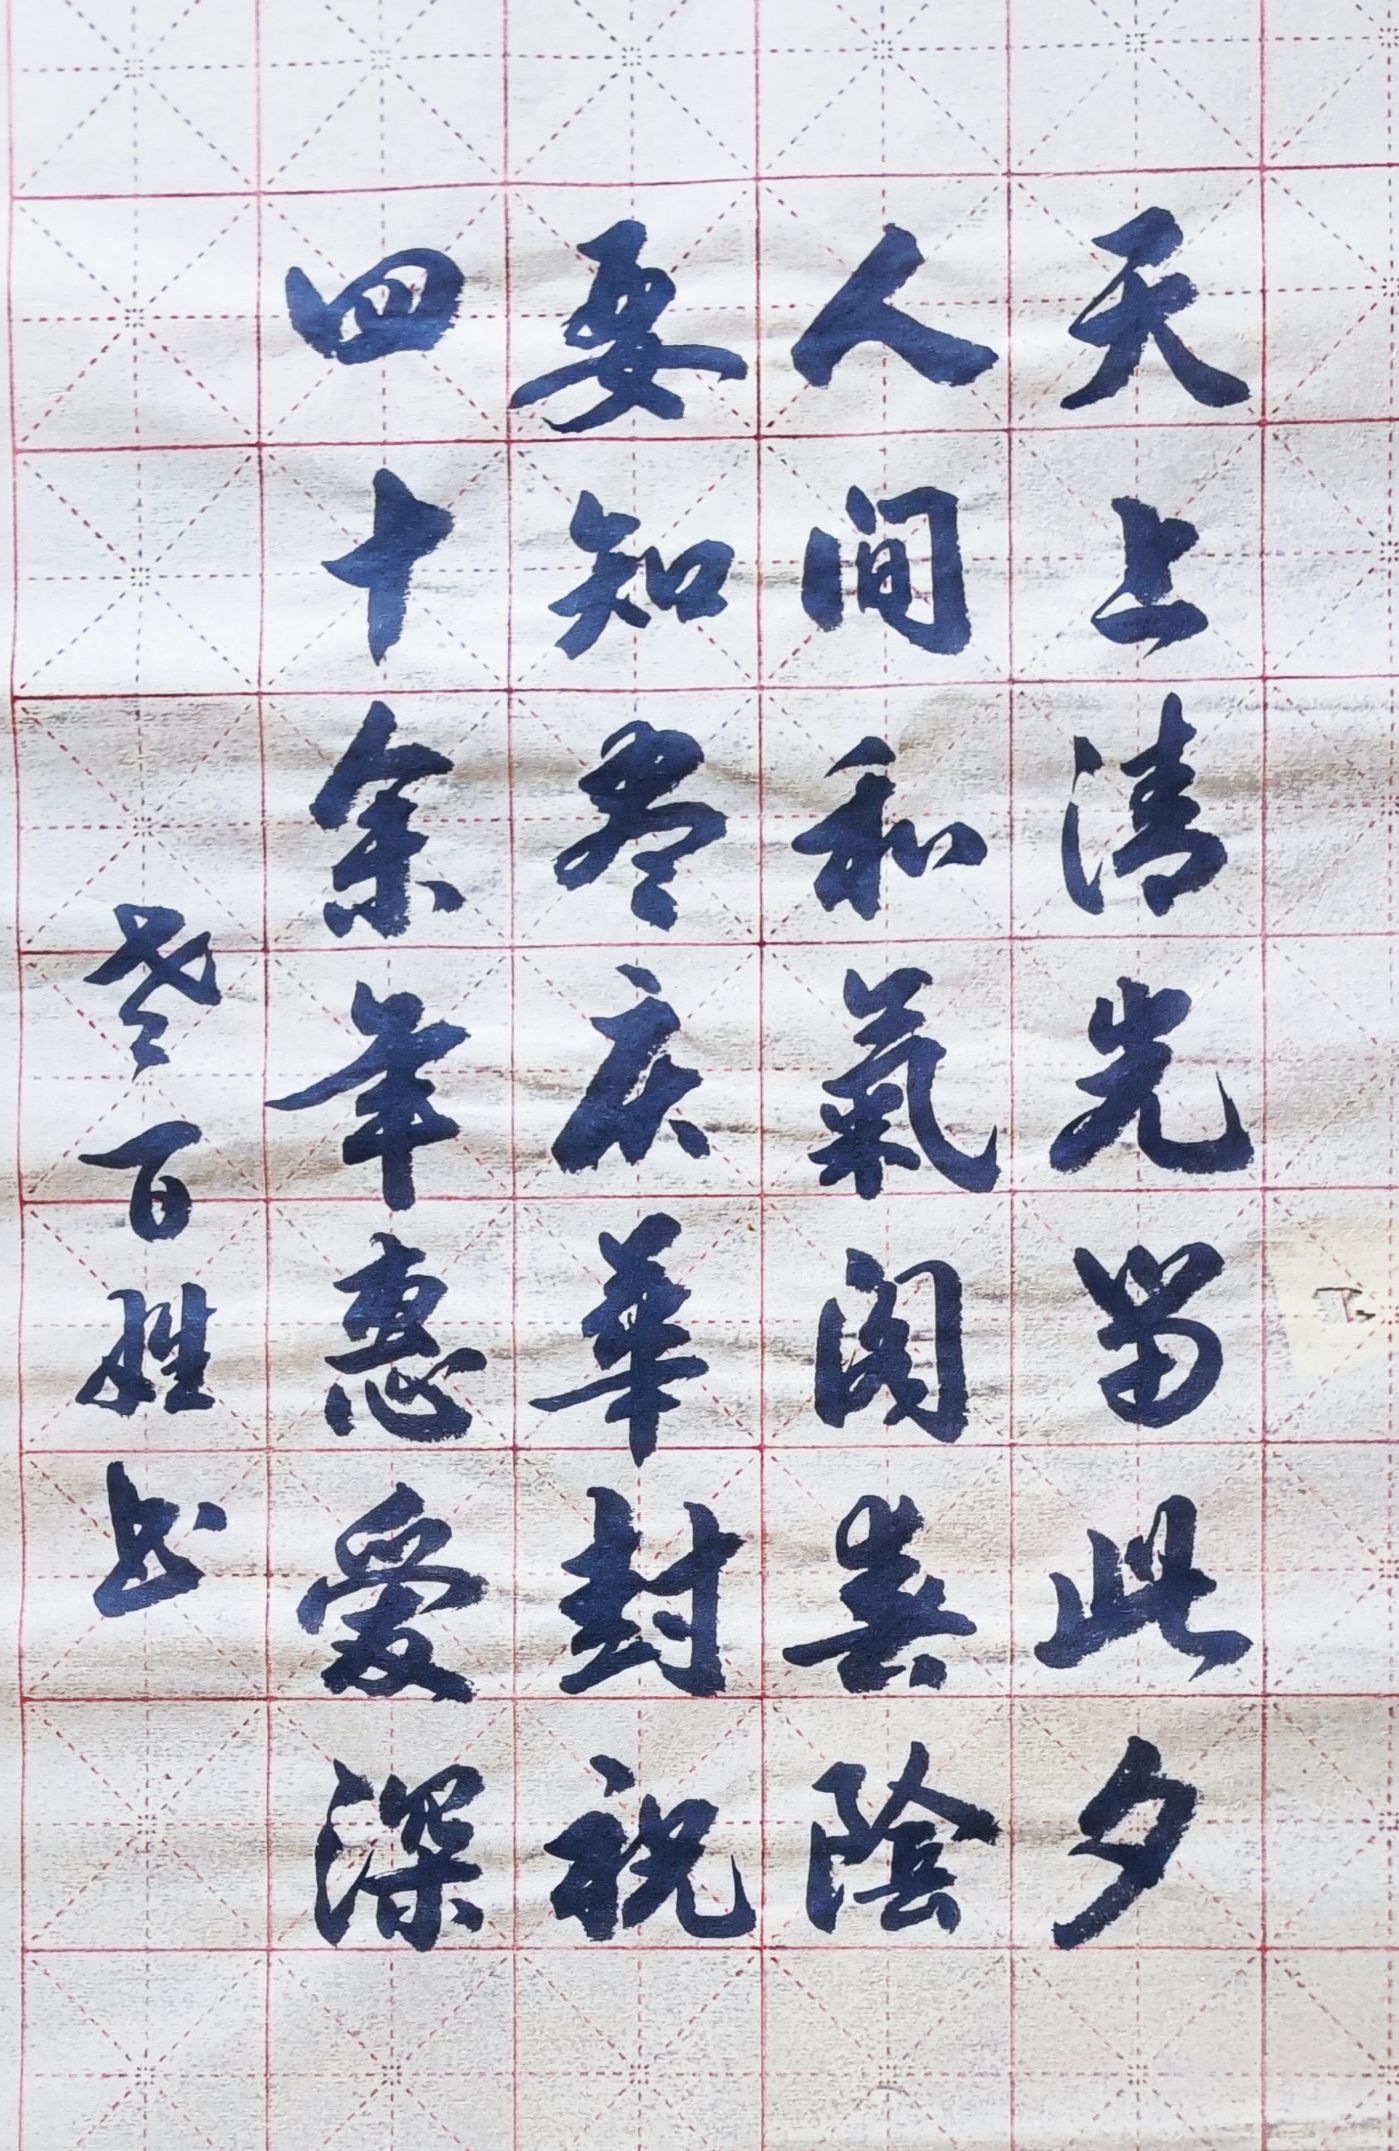 天上清光留此夕
人间和氣阁春陰
要知尽庆華封祝
四十余年惠爱深
老百姓书